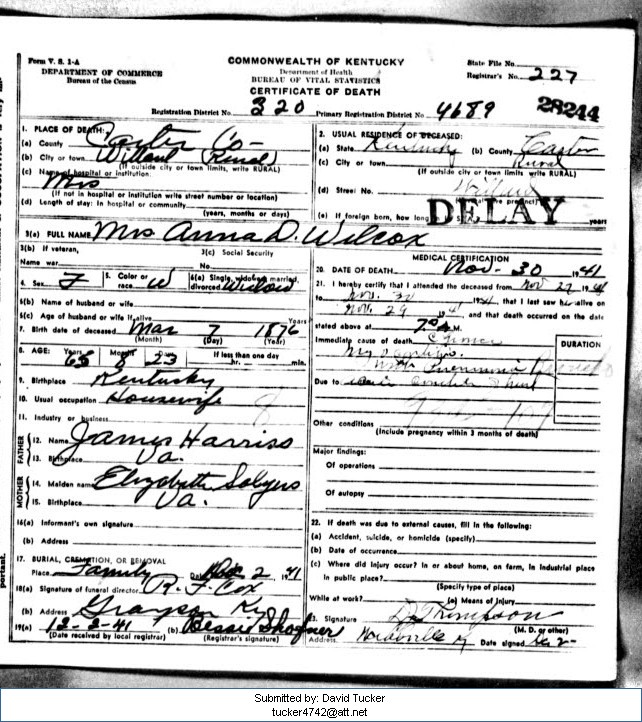 Form V. S. 1-A
DEPARTMENT OF COMMERCE
Bureau of the Census
COMMONWEALTH OF KENTUCKY
Department of Health
BUREAU OF VITAL STATISTICS
CERTIFICATE OF DEATH
State File No.
Registrar's No. 227
28244
Registration District No. 320 Primary Registration District No. 4689
1. PLACE OF DEATH:
(a) County Carter Co-
(b) City or town Willard (Rural)
(If outside city or town limits, write RURAL)
(c) Name of hospital or institution:
Mrs
(If not in hospital or institution write street number or location)
(d) Length of stay: In hospital or community
(years, months or days)
2. USUAL RESIDENCE OF DECEASED:
(a) State Kentucky (b) County Carter
(c) City or town Rural
(If outside city or town limits, write RURAL)
(d) Street No. Willard
DELAY
(e) If foreign born, how long years
3(a) FULL NAME Mrs Anna D. Wilcox
3(b) If veteran, 3(c) Social Security
Name war No.
4. Sex F 5. Color or race W 6(a) Single, widowed, married, divorced Widow
6(b) Name of husband or wife
6(c) Age of husband or wife if alive Years
7. Birth date of deceased Mar 7 1876
(Month) (Day) (Year)
8. AGE: Years Months Days If less than one day
65 8 23 hr. min.
9. Birthplace Kentucky
10. Usual occupation Housewife
11. Industry or business
FATHER
12. Name James Harriss
13. Birthplace Va.
MOTHER
14. Maiden name Elizabeth Salyers
15. Birthplace Va.
16(a) Informant's own signature
(b) Address
17. BURIAL, CREMATION, OR REMOVAL
Place Family Date 2 1941
18(a) Signature of funeral director R. F. Cox
(b) Address Grayson Ky
19(a) 12-2-41 (b) Bessie
(Date received by local registrar) (Registrar's signature)
MEDICAL CERTIFICATION
20. DATE OF DEATH Nov-30 1941
21. I hereby certify that I attended the deceased from Nov 29 1941
to Nov. 30 1941, that I last saw her alive on
Nov. 29 1941, and that death occurred on the date
stated above at M.
Immediate cause of death
DURATION
Due to
Other conditions
(Include pregnancy within 3 months of death)
Major findings:
Of operations
Of autopsy
22. If death was due to external causes, fill in the following:
(a) Accident, suicide, or homicide (specify)
(b) Date of occurrence
(c) Where did injury occur? In or about home, on farm, in industrial place
in public place?
(Specify type of place)
While at work? (e) Means of Injury
23. Signature D. Thompson
(M. D. or other)
Address Date signed
portant.
Submitted by: David Tucker
tucker4742@att.net